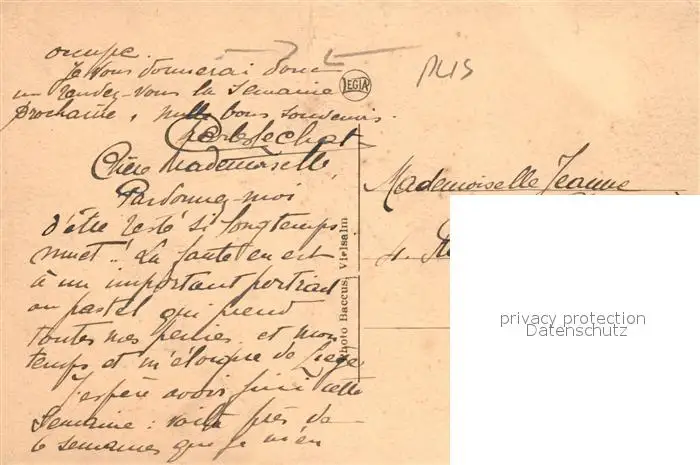 occupe.
Je vous donnerai donc
un rendez-vous la semaine
prochaine, mille bons souvenirs.
Lechat
Chère Mademoiselle,
Pardonnez-moi
d'être resté si longtemps
muet..! La faute en est
à un important portrait
au pastel qui prend
toutes mes peines et mon
temps et m'éloigne de Liège
J'espère avoir fini cette
semaine : voilà près de
6 semaines que je m'en
LEGIA
Photo Baccus, Vielsalm
Mademoiselle Jeanne
4.
privacy protection
Datenschutz